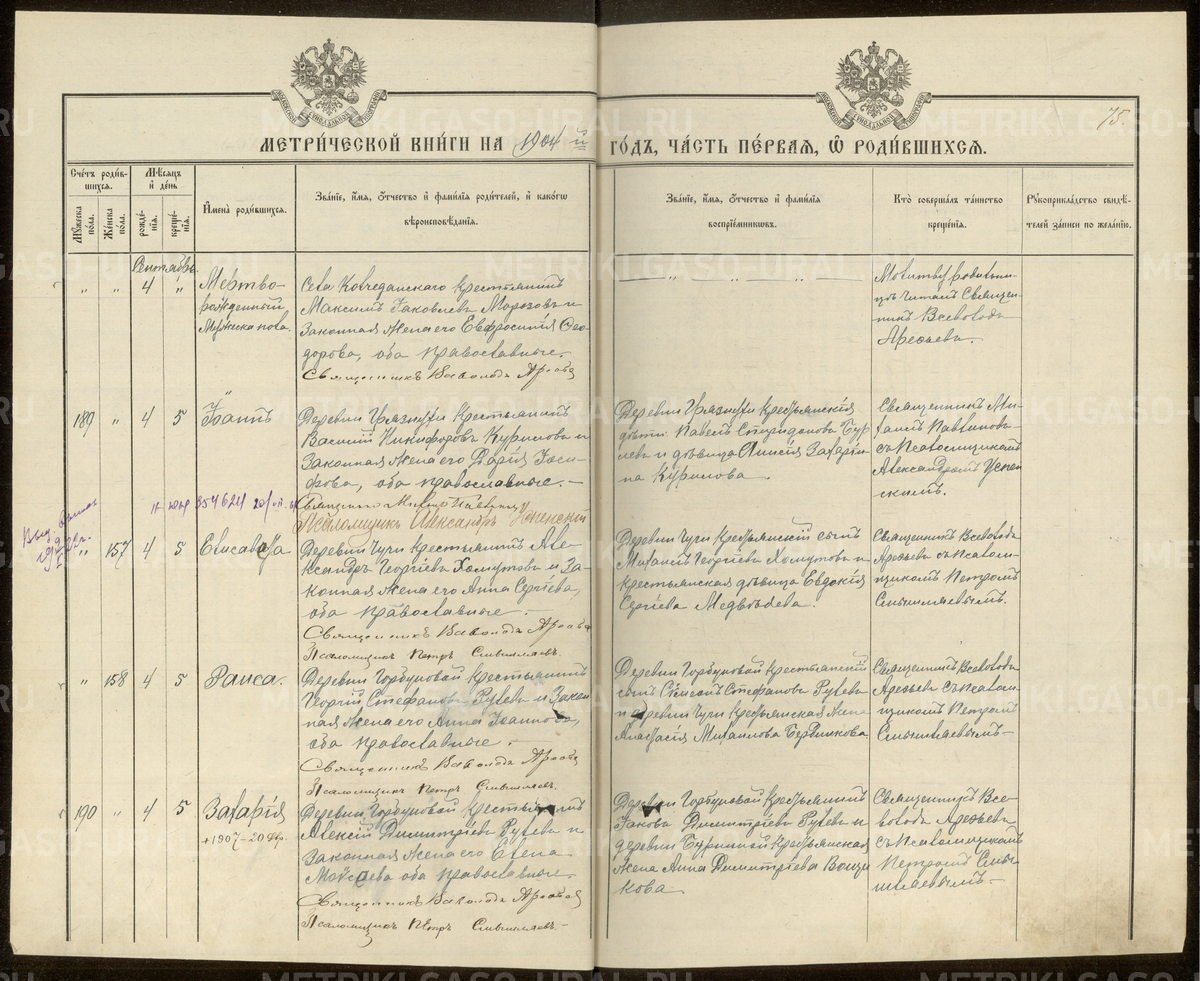 75.
МЕТРИ́ЧЕСКОЙ КНИ́ГИ НА 1904 й
ГО́ДЪ, ЧА́СТЬ ПЕ́РВАЯ, Ѿ РОДИ́ВШИХСЯ.
Сче́тъ роди́в-
шихся.
Мѣ́сяцъ
и҆ де́нь
Мꙋ́жеска по́ла.
Же́нска пола.
рожде́-
нїя.
креще́-
нїя.
И҆мена̀ роди́вшихся.
Зва́нїе, и҆́мя, ѻ҆́тчество и҆ фами́лїя роди́телей, и҆ како́гѡ
вѣроисповѣ́данїя.
Зва́нїе, и҆́мя, ѻ҆́тчество и҆ фами́лїя
воспрїе́мникѡвъ.
Кто̀ соверша́лъ та́инство
креще́нїя.
Рꙋкоприкла́дство свидѣ́-
телей за́писи по жела́нїю.
Сентябрь
" " 4 "
Мертво-
рожденный
Мужеска пола.
Села Колчеданскаго крестьянинъ
Максимъ Іаковлевъ Морозовъ и
законная жена его Евфросинія Ѳео-
дорова, оба православные.
Священникъ Всеволодъ Арефьев
— " — " — " — " —
Молитву родитель-
ницѣ читалъ Священ-
никъ Всеволодъ
Арефьевъ.
189 " 4 5
Іоаннъ
Деревни Грязнухи крестьянинъ
Василій Никифоровъ Куриловъ и
законная жена его Дарія Іоси-
фова, оба православные. —
Священникъ Михаилъ
Псаломщикъ Александръ Успенскій
Деревни Грязнухи крестьянскія
дѣти: Павелъ Спиридоновъ Бур-
левъ и дѣвица Анисія Захарі-
на Курилова.
Священникъ Ми-
хаилъ
съ псаломщикомъ
Александромъ Успен-
скимъ.
354624
" 157 4 5
Елисавета
Деревни Чуги крестьянинъ Але-
ксандръ Георгіевъ Хомутовъ и за-
конная жена его Анна Сергіева,
оба православные. —
Священникъ Всеволодъ Арефьев
Псаломщикъ Петръ Смышляевъ.
Деревни Чуги крестьянскій сынъ
Михаилъ Георгіевъ Хомутовъ и
крестьянская дѣвица Евдокія
Сергіева Медвѣдева.
Священникъ Всеволодъ
Арефьевъ съ псалом-
щикомъ Петромъ
Смышляевымъ.
" 158 4 5
Раиса.
Деревни Горбуновой крестьянинъ
Георгій Стефановъ Рулевъ и закон-
ная жена его Анна Іоаннова,
оба православные. —
Священникъ Всеволодъ Арефьев
Псаломщикъ Петръ Смышляевъ.
Деревни Горбуновой крестьянскій
сынъ Сѵмеонъ Стефановъ Рулевъ
и деревни Чуги крестьянская жена
Анастасія Михаилова Бердникова.
Священникъ Всеволодъ
Арефьевъ съ псалом-
щикомъ Петромъ
Смышляевымъ —
190 " 4 5
Захарія
+1907 – 20
Деревни Горбуновой крестьянинъ
Алексій Димитріевъ Рулевъ и
законная жена его Елена
Моисеева оба православные.
Священникъ Всеволодъ Арефьев
Псаломщикъ Петръ Смышляевъ. —
Деревни Горбуновой крестьянинъ
Іаковъ Димитріевъ Рулевъ и
деревни Буриной крестьянская
жена Анна Димитріева Вощи-
кова
Священникъ Все-
володъ Арефьевъ
съ псаломщикомъ
Петромъ Смы-
шляевымъ —
METRIKI.GASO-URAL.RU